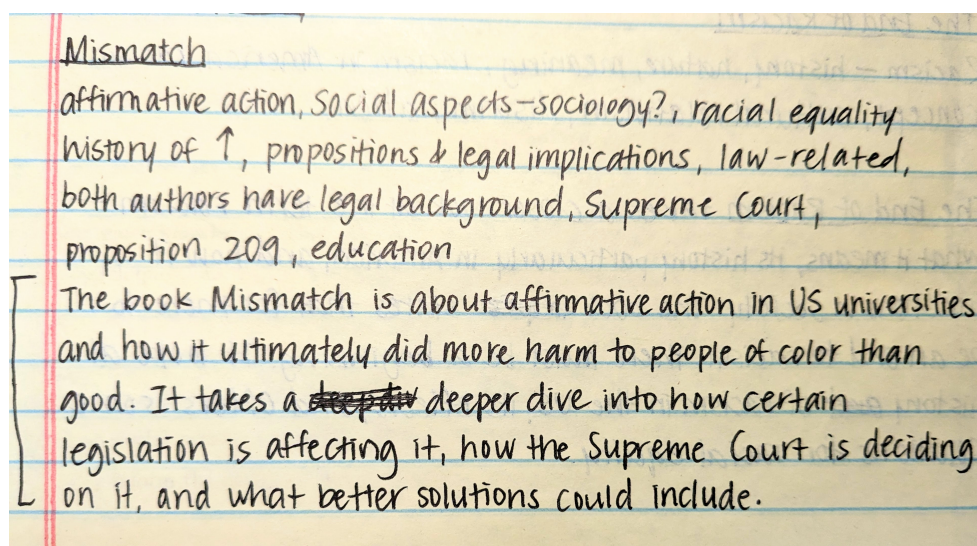 Mismatch
affirmative action, social aspects-sociology?, racial equality
history of ↑, propositions & legal implications, law-related,
both authors have legal background, Supreme Court,
proposition 209, education
The book Mismatch is about affirmative action in US universities
and how it ultimately did more harm to people of color than
good. It takes a deeper dive into how certain
legislation is affecting it, how the Supreme Court is deciding
on it, and what better solutions could include.